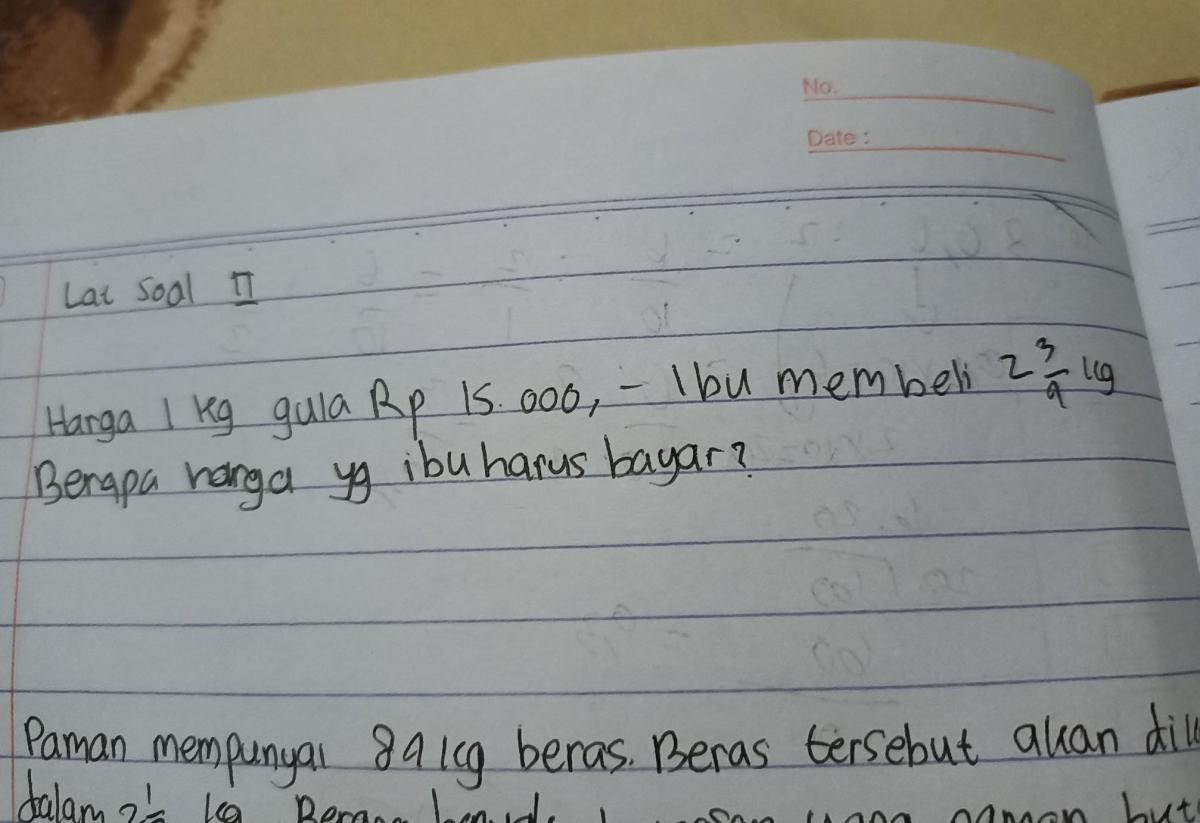 No.
Date :
Lat Soal II
Harga 1 kg gula Rp 15.000,- Ibu membeli 2 3/4 kg
Berapa harga yg ibu harus bayar?
Paman mempunyai 84 kg beras. Beras tersebut akan
dalam kg